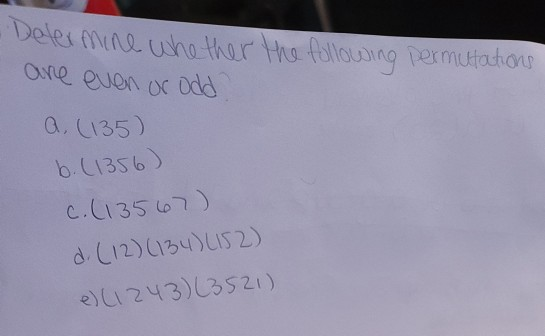 Determine whether the following permutations
are even or odd?
a. (135)
b. (1356)
c. (13567)
d. (12)(134)(152)
e) (1243)(3521)